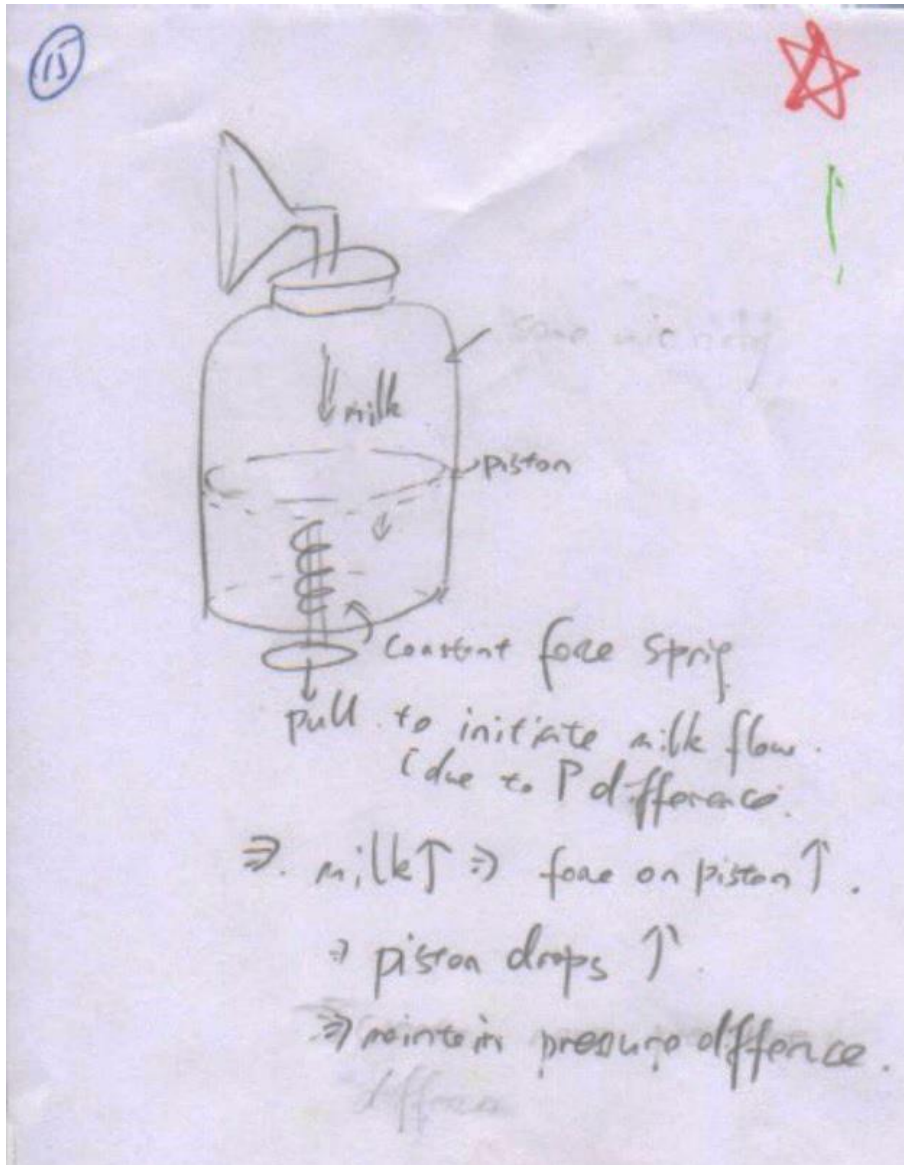 15
milk
piston
constant force spring
pull to initiate milk flow.
(due to P difference.
⇒. milk↑ ⇒ force on piston ↑.
⇒ piston drops ↑.
⇒ maintain pressure diffence.